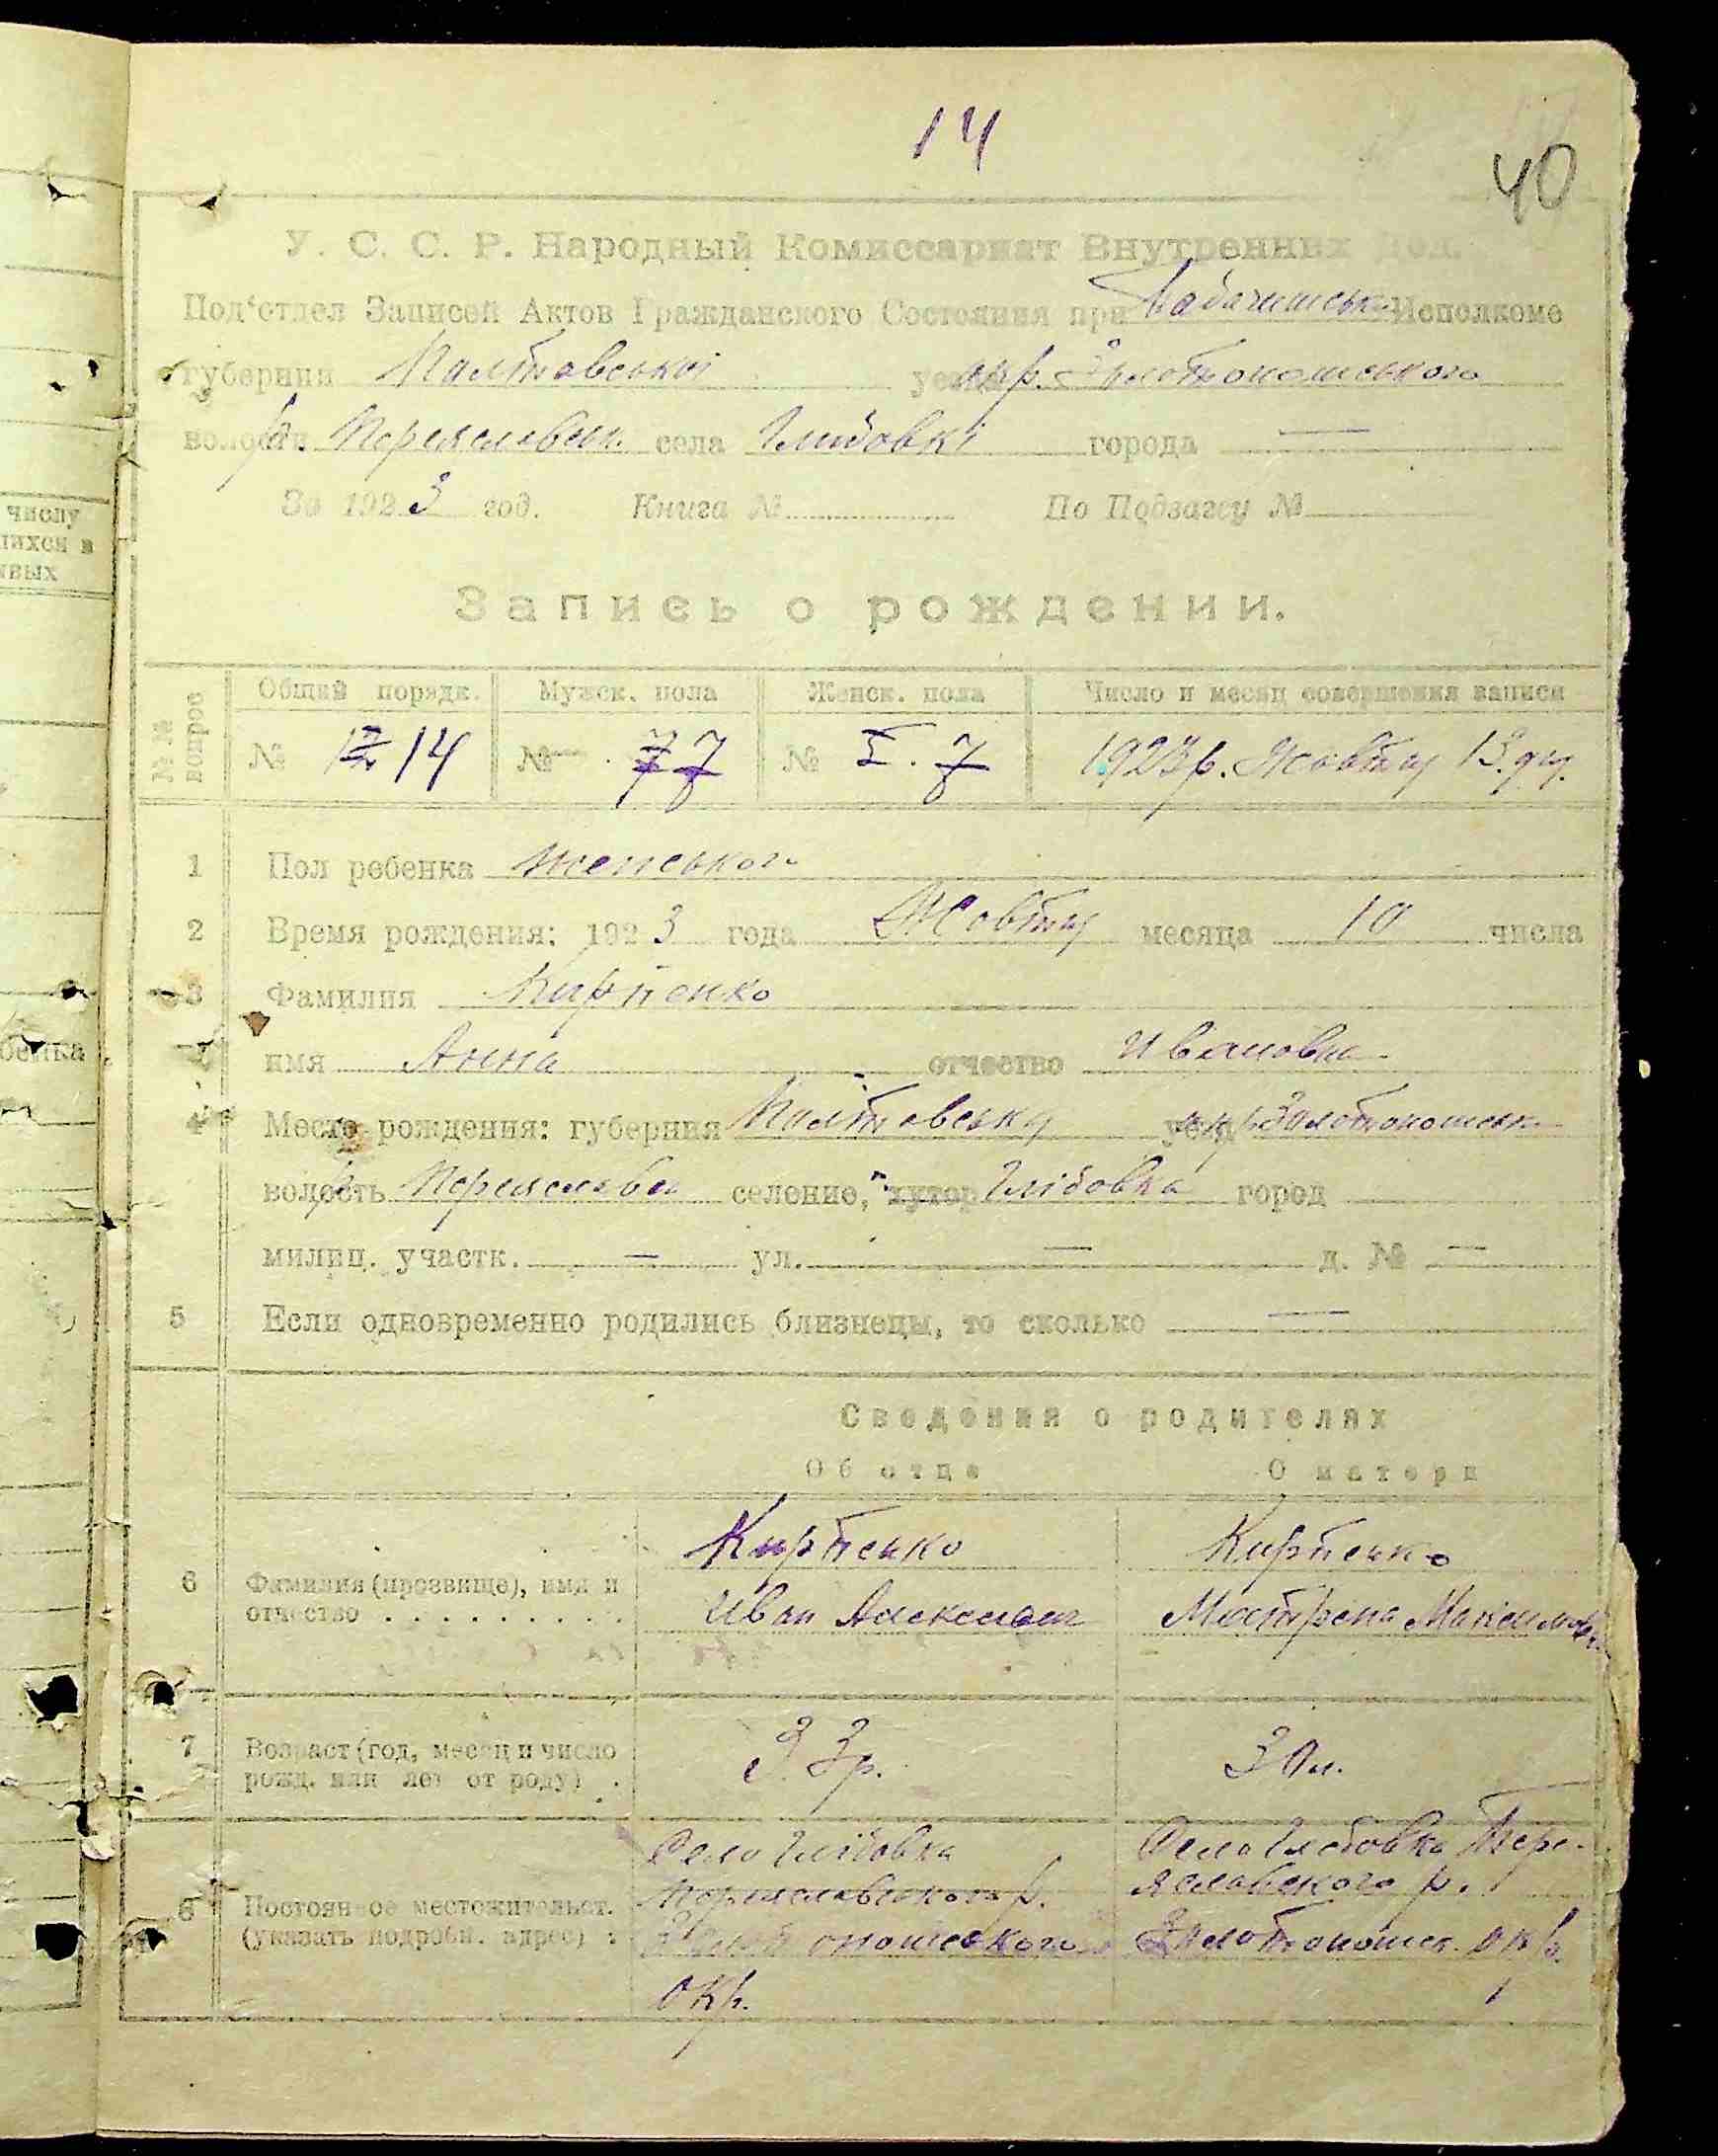 14
40
У. С. С. Р. Народный Комиссариат Внутренних Дел.
Под'отдел Записей Актов Гражданского Состояния при Исполкоме
губернии Палтовської окр. Золотоношського
волости р. Переяславськ. села Глибовкі города —
За 1923 год. Книга № По Подзагсу №
Запись о рождении.
№№ вопрос
Общий порядк. Мужск. пола Женск. пола Число и месяц совершения записи
№ 14 № 7 7 № 7 1923 р. Жовтня 13 дня.
1 Пол ребенка женського
2 Время рождения: 1923 года Жовтня месяца 10 числа
3 Фамилия Кирпенко
имя Анна отчество Ивановна
4 Место рождения: губерния Палтовська окр Золотоношськ
волость р Переяславсь селение, хутор Глібовка город
милиц. участк. — ул. — д. № —
5 Если одновременно родились близнецы, то сколько —
Сведения о родителях
Об отце О матери
6 Фамилия (прозвище), имя и отчество
Кирпенко
Иван Алексеевич
Кирпенко
Матрена Максимовна
7 Возраст (год, месяц и число рожд. или лет от роду)
33 р.
30 л.
8 Постоянное местожительст. (указать подробн. адрес)
Село Глібовка
Переяславського р.
Золотоношського
окр.
Село Глебовка Пере-
яславского р.
Золотоношск. окр.
числу
шихся в
ивых
бенка